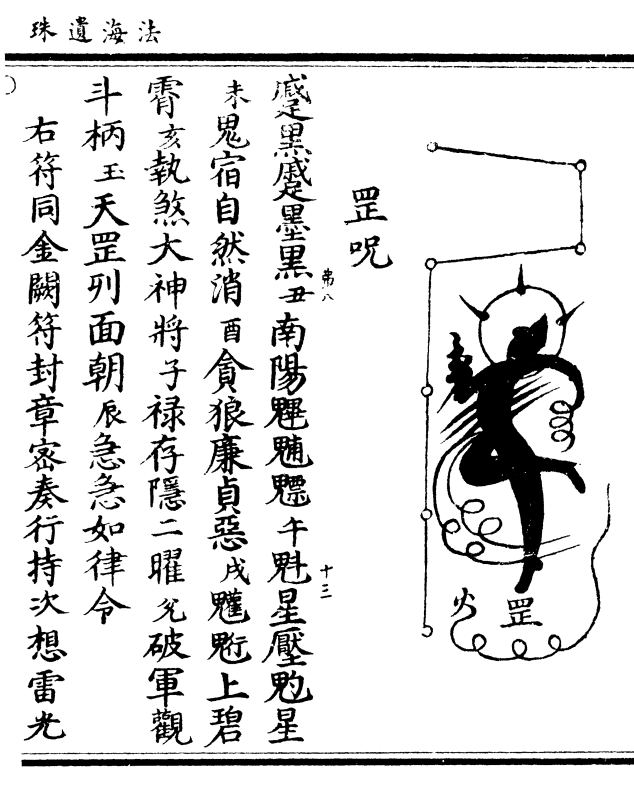 法海遺珠
罡
火
罡呪
蹙黑蹙墨黑丑第八南陽魓䰣魒午十三魁星壓𩲃星
未鬼宿自然消酉貪狼廉貞惡戌䰱䰢上碧
霄亥執煞大神將子禄存隱二曜兊破軍觀
斗柄玉天罡列面朝辰急急如律令
右符同金闕符封章密奏行持次想雷光